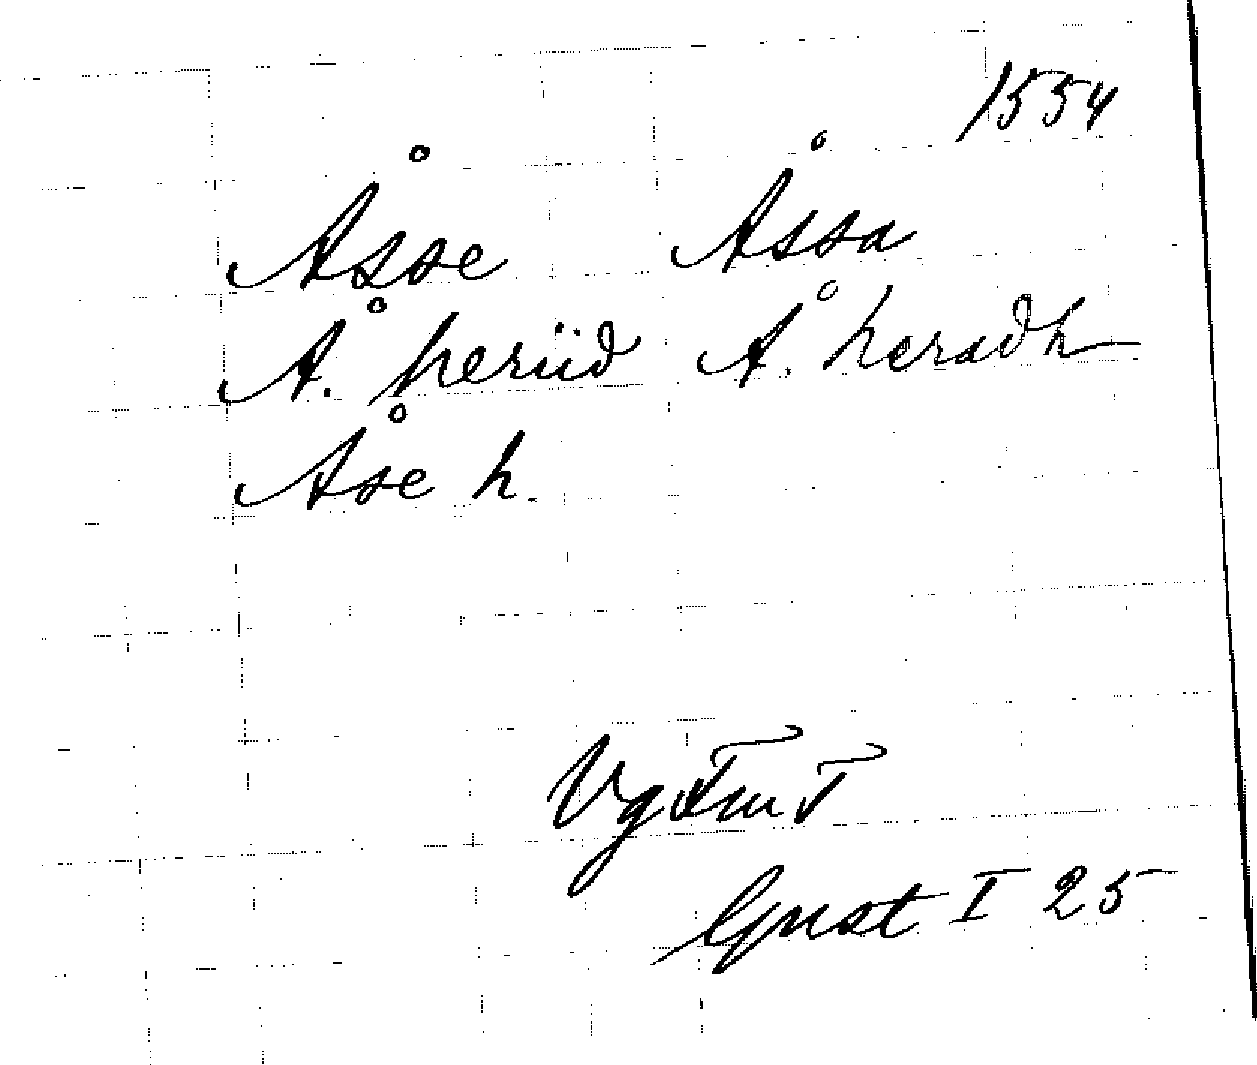 1554
Åsse Åssa
Å. heriid Å. heradh
Åse h.
Vg FmT
Gust I 25